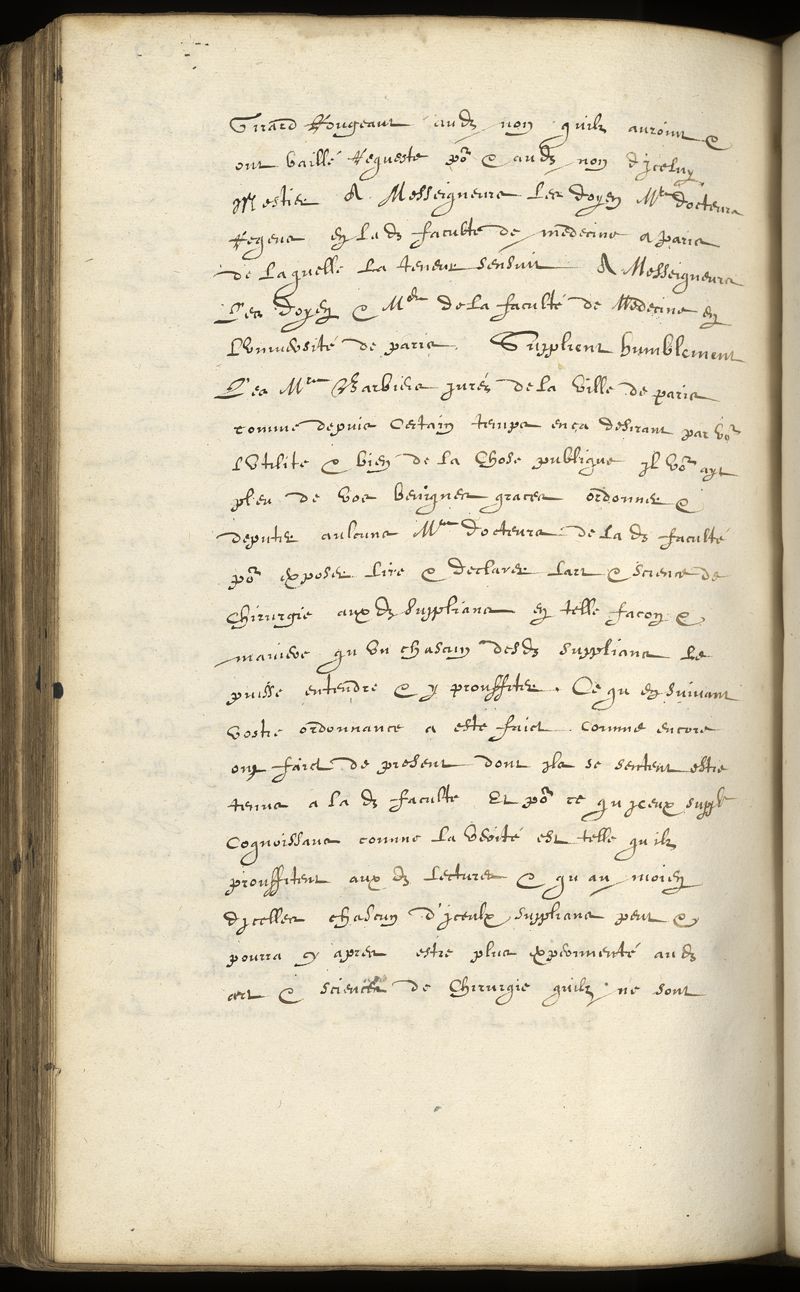 Girard Rougeaut aud non quilz auroint &
ont baillé Requeste po^r & aud non d'Iceluy
Mestier A Messeigneurs Les doyen M^rs docteurs
Regens en Lad faculté de medecine a paris
de Laquelle La teneur sensuit A Messeigneurs
Les doyen & M^rs de La faculté de Medecine en
L'Vniuersité de paris. Supplient humblement
Les M^rs Barbiers jurés de La Ville de paris
comme depuis Certain temps ença desirant par vo^s
L'Vtilité & bien de La Chose publique Il Vo^s ayt
pleu de vos benignes graces ordonner &
deputer aulcuns M^rs docteurs de Lad faculté
po^r exposer Lire & declarer Lart & Science de
Chirurgie auxd supplians en telle facon &
maniere qu vn chascun desd supplians Le
puisse entendre & y prouffiter. Ce qu ensuivant
vostre ordonnance a esté faict. comme encore
ont faict de present dont ilz se sentent estre
tenus a Lad faculté Et po^r ce qu iceux suppl^s
Cognoissans comme La Verité est telle quilz
prouffitent auxd Lectures & qu au moien
d'icelles chascun d'iceulx supplians peut &
pourra cy apres estre plus experimenté aud
art & science de Chirurgie quilz ne sont